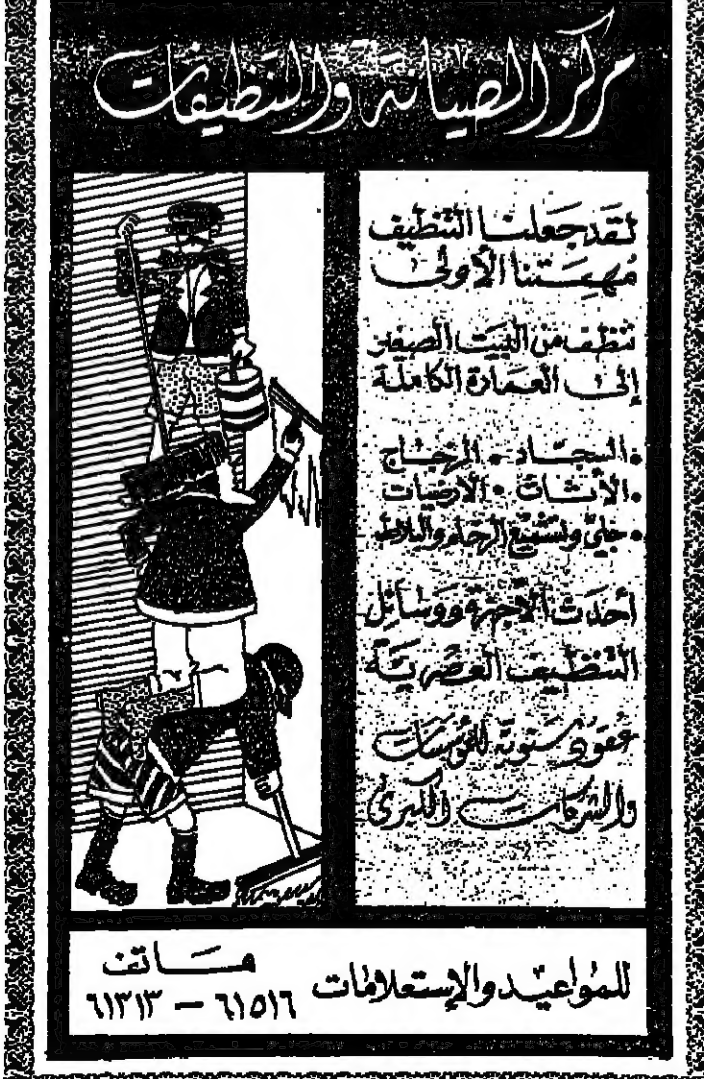 مركز الصيانة والتنظيفات
لقد جعلنا التنظيف
مهمتنا الأولى
ننظف من البيت الصغير
إلى العمارة الكاملة
• السجاد • الزجاج
• الأثاث • الأرضيات
• جلي وتشميع الرخام والبلاط
أحدث الأجهزة ووسائل
التنظيف العصرية
عقود سنوية للمؤسسات
والشركات الكبرى
للمواعيد والإستعلامات
هاتف
٦١٥١٦ – ٦١٣١٣